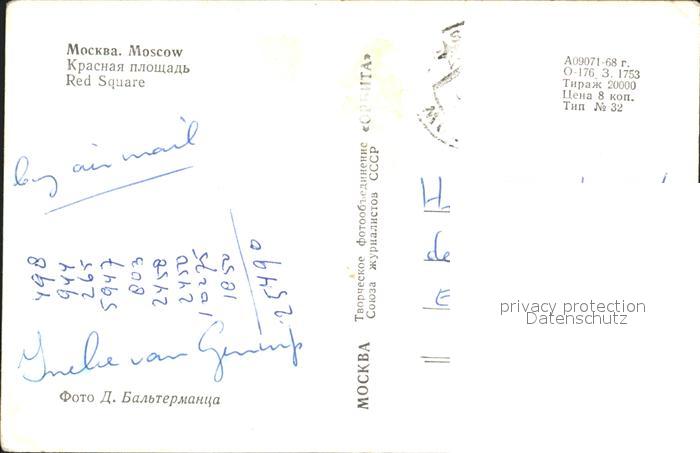 Москва. Moscow
Красная площадь
Red Square
by air mail
498
944
265
5947
803
2458
2450
10275
1850
25490
Ineke van
Фото Д. Бальтерманца
МОСКВА Творческое фотообъединение «ОРБИТА»
Союза журналистов СССР
А09071-68 г.
О-176 З. 1753
Тираж 20000
Цена 8 коп.
Тип № 32
H
de
E
privacy protection
Datenschutz